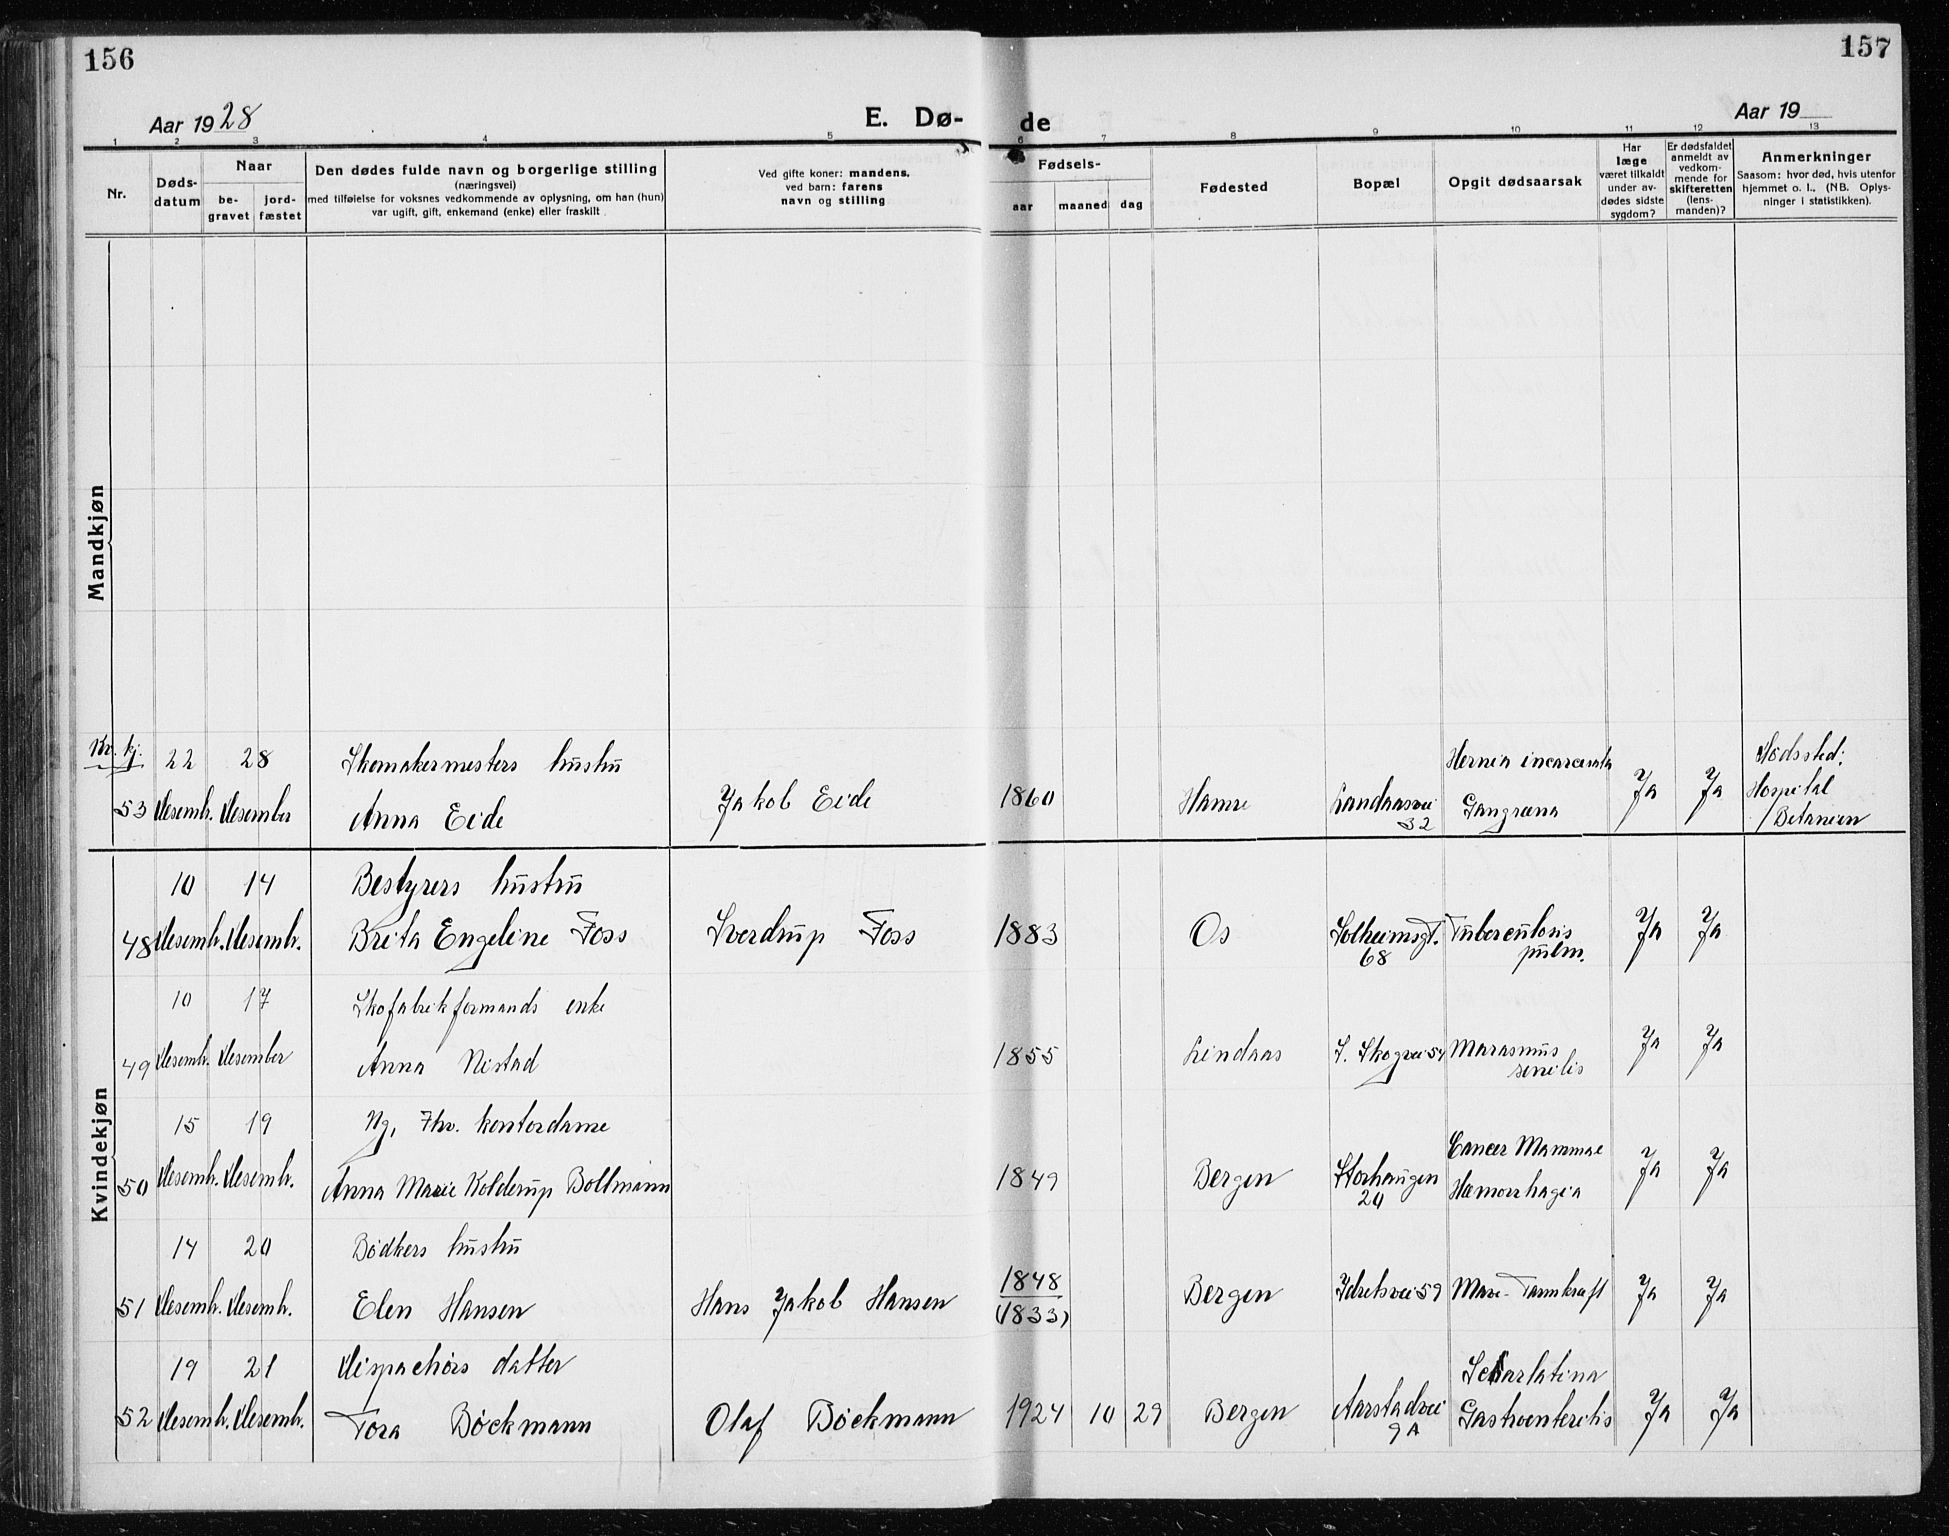 156
157
Aar 1928
E. Dø-
de
Aar 19
1 2 3 4 5 6 7 8 9 10 11 12 13
Nr.
Døds-
datum
Naar
be-
gravet
jord-
fæstet
Den dødes fulde navn og borgerlige stilling
(næringsvei)
med tilføielse for voksnes vedkommende av oplysning, om han (hun)
var ugift, gift, enkemand (enke) eller fraskilt
Ved gifte koner: mandens,
ved barn: farens
navn og stilling
Fødsels-
aar
maaned
dag
Fødested
Bopæl
Opgit dødsaarsak
Har
læge
været tilkaldt
under av-
dødes sidste
sygdom?
Er dødsfaldet
anmeldt av
vedkom-
mende for
skifteretten
(lens-
manden)?
Anmerkninger
Saasom: hvor død, hvis utenfor
hjemmet o. l., (NB. Oplys-
ninger i statistikken).
Mandkjøn
Kv. kj. 22 28 Skomakermesters hustru Hernia incarcerata Dødssted:
53 Desemb. Desember Anna Eide Jakob Eide 1860 Hamre Landaasvei Gangræna Ja Ja Hospital
32 Betanien
Kvindekjøn
10 14 Bestyrers hustru
48 Desemb. Desemb. Brita Engeline Foss Sverdrup Foss 1883 Os Solheimsgt. Tuberculosis Ja Ja
68 pulm.
10 17 Skofabrikformands enke
49 Desemb. Desember Anna Nistad 1855 Lindaas S. Skogvei 54 Marasmus Ja Ja
senilis
15 19 Ug. fhv. kontordame Cancer Mammae
50 Desemb. Desemb. Anna Marie Kolderup Bollmann 1849 Bergen Storhaugen Hæmorrhagia Ja Ja
20
14 20 Bødkers hustru
51 Desemb. Desemb. Elen Hansen Hans Jakob Hansen 1848 Bergen Idretsvei 59 Mave-Tarmkræft Ja Ja
(1833)
19 21 Dispachørs datter Scharlatina
52 Desemb. Desemb. Tora Bøckmann Olaf Bøckmann 1924 10 29 Bergen Aarstadvei Gastroenteritis Ja Ja
9A